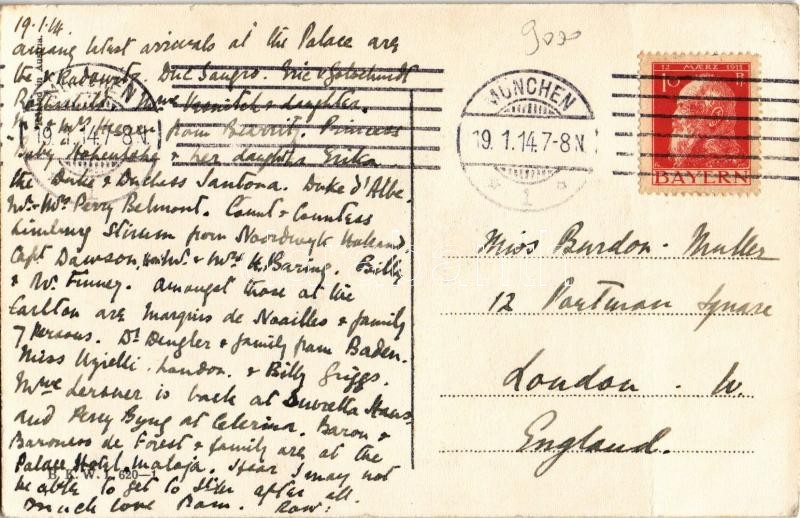 19.1.14.
among latest arrivals at the Palace are
the Radowitz. Duc Sangro.
Rothschild. Mme & daughter.
& Mrs from Biarritz. Princess
Hohenlohe & her daughter Erika
the Duke & Duchess Santona. Duke d'Albe.
Mr. Mrs Perry Belmont. Count & Countess
Limburg Stirum from Noordwyk Holland
Capt Dawson, Honble. & Mrs H. Baring. Billy
& W. Finney. amongst those at the
Carlton are Marquis de Noailles & family
7 persons. Dr Dengler & family from Baden.
Miss Uzielli. London. & Billy Griggs.
Mme Lersner is back at Suvretta Haus.
and Percy Byng at Celerina. Baron &
Baroness de Forest & family are at the
Palace Hotel Maloja. I fear I may not
be able to get to after all.
much love
B. K. W. I. 620-1
9020
MÜNCHEN
19. 1. 14. 7-8 N.
1
MÜNCHEN
19. 1. 14. 7-8 N
1
12 MÆRZ 1911
10 Pf
BAYERN
Miss Burdon-Muller
12 Portman Square
London. W.
England.